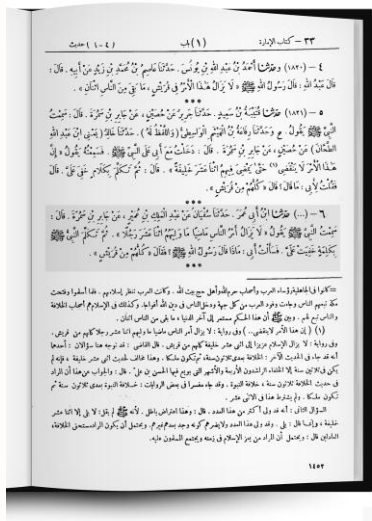 ٣٣ – كتاب الإمارة (١) باب (١-٤) حديث
٤ – (١٨٢٠) وحدثنا أحمد بن عبد الله بن يونس . حدثنا عاصم بن محمد بن زيد عن أبيه . قال :
قال عبد الله : قال رسول الله ﷺ « لا يزال هذا الأمر في قريش ، ما بقي من الناس اثنان » .
***
٥ – (١٨٢١) حدثنا قتيبة بن سعيد . حدثنا جرير عن حصين ، عن جابر بن سمرة . قال : سمعت
النبي ﷺ يقول . ح وحدثنا رفاعة بن الهيثم الواسطي ( واللفظ له ) . حدثنا خالد ( يعني ابن عبد الله
الطحان ) عن حصين ، عن جابر بن سمرة . قال : دخلت مع أبي على النبي ﷺ . فسمعته يقول « إن
هذا الأمر لا ينقضي (١) حتى يمضي فيهم اثنا عشر خليفة » . قال : ثم تكلم بكلام خفي علي . قال
فقلت لأبي : ما قال ؟ قال « كلهم من قريش » .
***
٦ – (...) حدثنا ابن أبي عمر . حدثنا سفيان عن عبد الملك بن عمير ، عن جابر بن سمرة . قال :
سمعت النبي ﷺ يقول « لا يزال أمر الناس ماضيا ما وليهم اثنا عشر رجلا » . ثم تكلم النبي ﷺ
بكلمة خفيت علي . فسألت أبي : ماذا قال رسول الله ﷺ ؟ فقال « كلهم من قريش » .
***
= كانوا في الجاهلية رؤساء العرب وأصحاب حرم الله وأهل حج بيت الله . وكانت العرب تنظر إسلامهم . فلما أسلموا وفتحت
مكة تبعهم الناس وجاءت وفود العرب من كل جهة ودخل الناس في دين الله أفواجا . وكذلك في الإسلام هم أصحاب الخلافة
والناس تبع لهم . وبين ﷺ أن هذا الحكم مستمر إلى آخر الدنيا ، ما بقي من الناس اثنان .
(١) ( إن هذا الأمر لا ينقضي.. ) وفي رواية : لا يزال أمر الناس ماضيا ما وليهم اثنا عشر رجلا كلهم من قريش .
وفي رواية : لا يزال الإسلام عزيزا إلى اثني عشر خليفة كلهم من قريش . قال القاضي : قد توجه هنا سؤالان : أحدهما
أنه قد جاء في الحديث الآخر : الخلافة بعدي ثلاثون سنة، ثم تكون ملكا . وهذا مخالف لحديث اثني عشر خليفة ، فإنه لم
يكن في ثلاثين سنة إلا الخلفاء الراشدون الأربعة والأشهر التي بويع فيها الحسن بن علي . قال : والجواب عن هذا أن المراد
في حديث الخلافة ثلاثون سنة ، خلافة النبوة . وقد جاء مفسرا في بعض الروايات : خلافة النبوة بعدي ثلاثون سنة ثم
تكون ملكا . ولم يشترط هذا في الاثني عشر .
السؤال الثاني : أنه قد ولي أكثر من هذا العدد . قال : وهذا اعتراض باطل . لأنه ﷺ لم يقل: لا يلي إلا اثنا عشر
خليفة ، وإنما قال : يلي . وقد ولي هذا العدد ولا يضر كونه وجد بعدهم غيرهم . ويحتمل أن يكون المراد مستحق الخلافة،
العادلين قال : ويحتمل أن المراد من يعز الإسلام في زمنه ويجتمع المسلمون عليه.
١٤٥٢